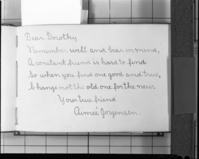 Dear Dorothy
Remember well and bear in mind,
A constant friend is hard to find
So when you find one good and true,
Change not the old one for the new.
Your true friend
Aimee Jorgensen.